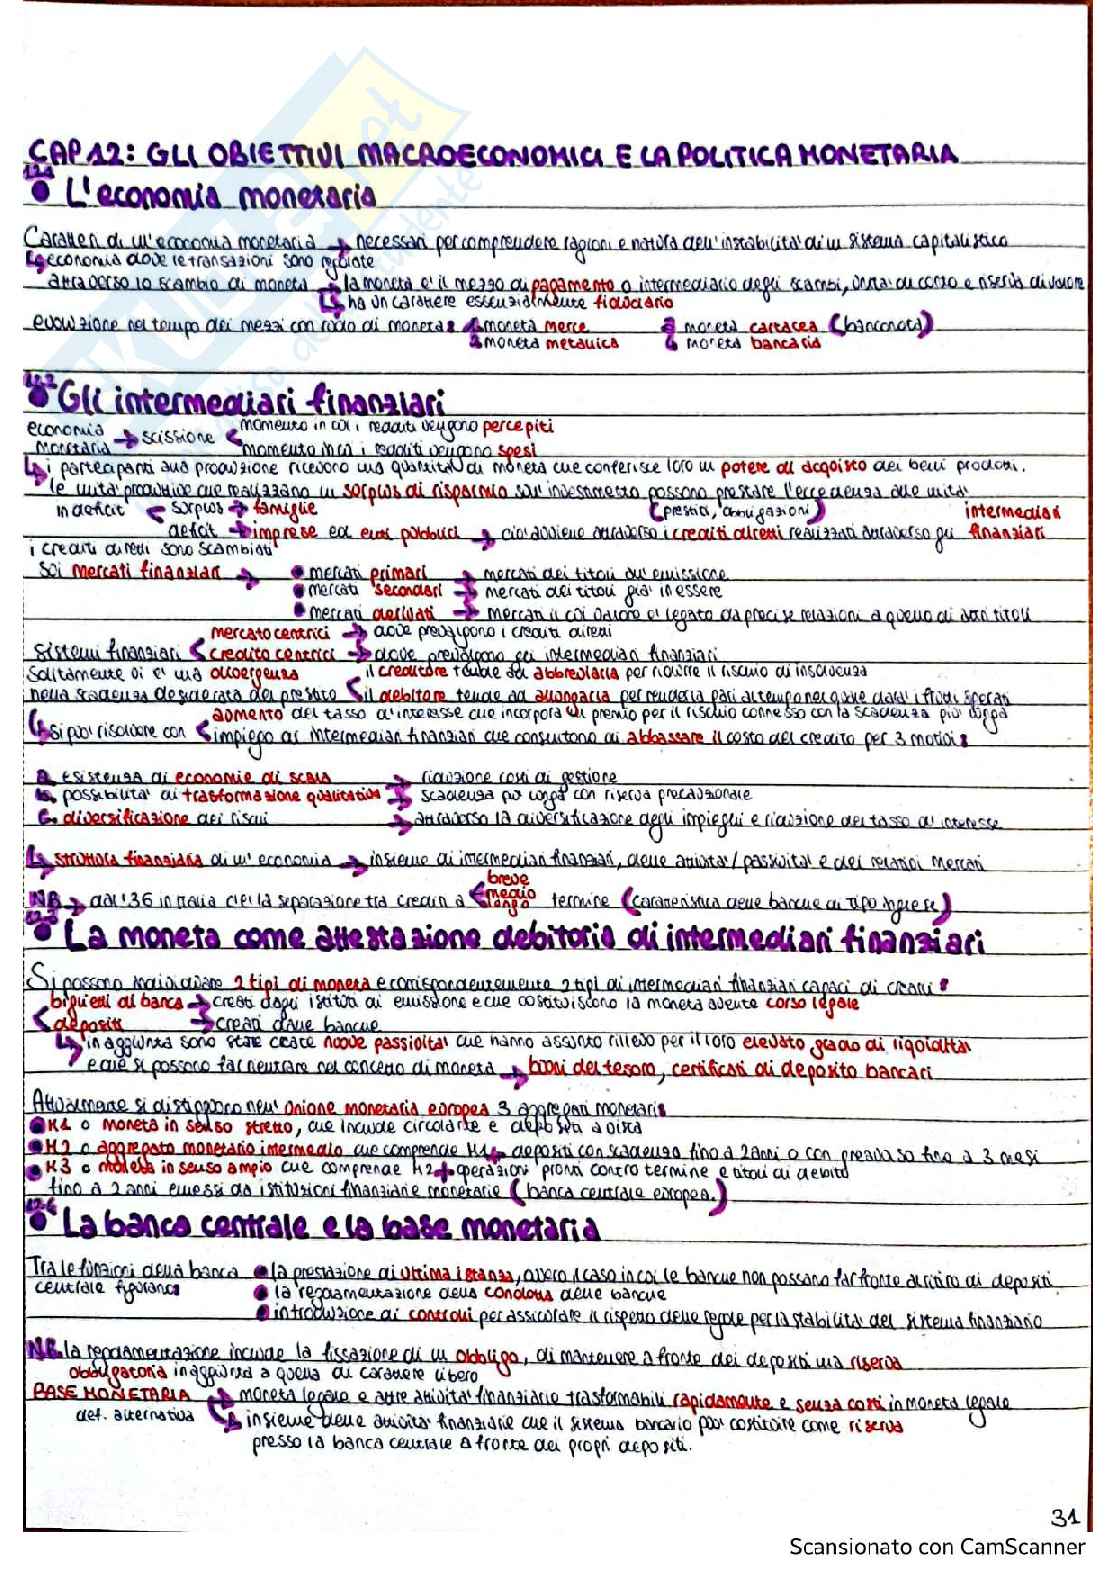 CAP 12: GLI OBIETTIVI MACROECONOMICI E LA POLITICA MONETARIA
12.1
• L'economia monetaria
Caratteri di un'economia monetaria → necessari per comprendere ragioni e natura dell'instabilità di un sistema capitalistico
↳ economia dove le transazioni sono regolate
attraverso lo scambio di moneta → la moneta è il mezzo di pagamento o intermediario degli scambi, unità di conto e riserva di valore
↳ ha un carattere essenzialmente fiduciario
evoluzione nel tempo dei mezzi con ruolo di moneta: 1. moneta merce 3. moneta cartacea (banconota)
2. moneta metallica 4. moneta bancaria
12.2
• Gli intermediari finanziari
economia monetaria → scissione < momento in cui i redditi vengono percepiti
momento in cui i redditi vengono spesi
↳ i partecipanti alla produzione ricevono una quantità di moneta che conferisce loro un potere di acquisto dei beni prodotti.
le unità produttive che realizzano un surplus di risparmio sull'investimento possono prestare l'eccedenza alle unità
in deficit < surplus → famiglie (prestiti, obbligazioni) intermediari
deficit → imprese ed enti pubblici → ciò avviene attraverso i crediti diretti realizzati attraverso gli finanziari
i crediti diretti sono scambiati
sui mercati finanziari → • mercati primari → mercati dei titoli di emissione
• mercati secondari → mercati dei titoli già in essere
• mercati derivati → mercati il cui valore è legato da precise relazioni a quello di altri titoli
mercato centrici → dove prevalgono i crediti diretti
Sistemi finanziari < credito centrici → dove prevalgono gli intermediari finanziari
Solitamente vi è una divergenza il creditore tende ad abbreviarla per ridurre il rischio di insolvenza
nella scadenza desiderata del prestito < il debitore tende ad allungarla per renderla pari al tempo nel quale darà i flussi sperati
aumento del tasso d'interesse che incorpora un premio per il rischio connesso con la scadenza più lunga
↳ si può risolvere con < impiego di intermediari finanziari che consentono di abbassare il costo del credito per 3 motivi:
a. esistenza di economie di scala → riduzione costi di gestione
b. possibilità di trasformazione qualitativa → scadenza più lunga con riserva precauzionale
c. diversificazione dei rischi → attraverso la diversificazione degli impieghi e riduzione del tasso di interesse
↳ struttura finanziaria di un'economia → insieme di intermediari finanziari, delle attività/passività e dei relativi mercati
breve
NB → dal '36 in Italia c'è la separazione tra crediti a < medio termine (caratteristica delle banche di tipo inglese)
lungo
12.3
• La moneta come attestazione debitoria di intermediari finanziari
Si possono individuare 2 tipi di moneta e corrispondentemente 2 tipi di intermediari finanziari capaci di crearli:
biglietti di banca → creati dagli istituti di emissione e che costituiscono la moneta avente corso legale
< depositi → creati dalle banche
↳ in aggiunta sono state create nuove passività che hanno assunto rilievo per il loro elevato grado di liquidità
e che si possono far rientrare nel concetto di moneta → buoni del tesoro, certificati di deposito bancari
Attualmente si distinguono nell'Unione monetaria europea 3 aggregati monetari:
• M1 o moneta in senso stretto, che include circolante e depositi a vista
• M2 o aggregato monetario intermedio che comprende M1 + depositi con scadenza fino a 2 anni o con preavviso fino a 3 mesi
• M3 o moneta in senso ampio che comprende M2 + operazioni pronti contro termine e titoli di debito
fino a 2 anni emessi da istituzioni finanziarie monetarie (banca centrale europea.)
12.4
• La banca centrale e la base monetaria
Tra le funzioni della banca • la prestazione di ultima istanza, ovvero il caso in cui le banche non possano far fronte al ritiro di depositi
centrale figurano • la regolamentazione della condotta delle banche
• introduzione di controlli per assicurare il rispetto delle regole per la stabilità del sistema finanziario
NB. la regolamentazione include la fissazione di un obbligo, di mantenere a fronte dei depositi una riserva
obbligatoria in aggiunta a quella di carattere libero
BASE MONETARIA → moneta legale e altre attività finanziarie trasformabili rapidamente e senza costi in moneta legale
def. alternativa ↳ insieme delle attività finanziarie che il sistema bancario può costituire come riserva
presso la banca centrale a fronte dei propri depositi.
31
Scansionato con CamScanner